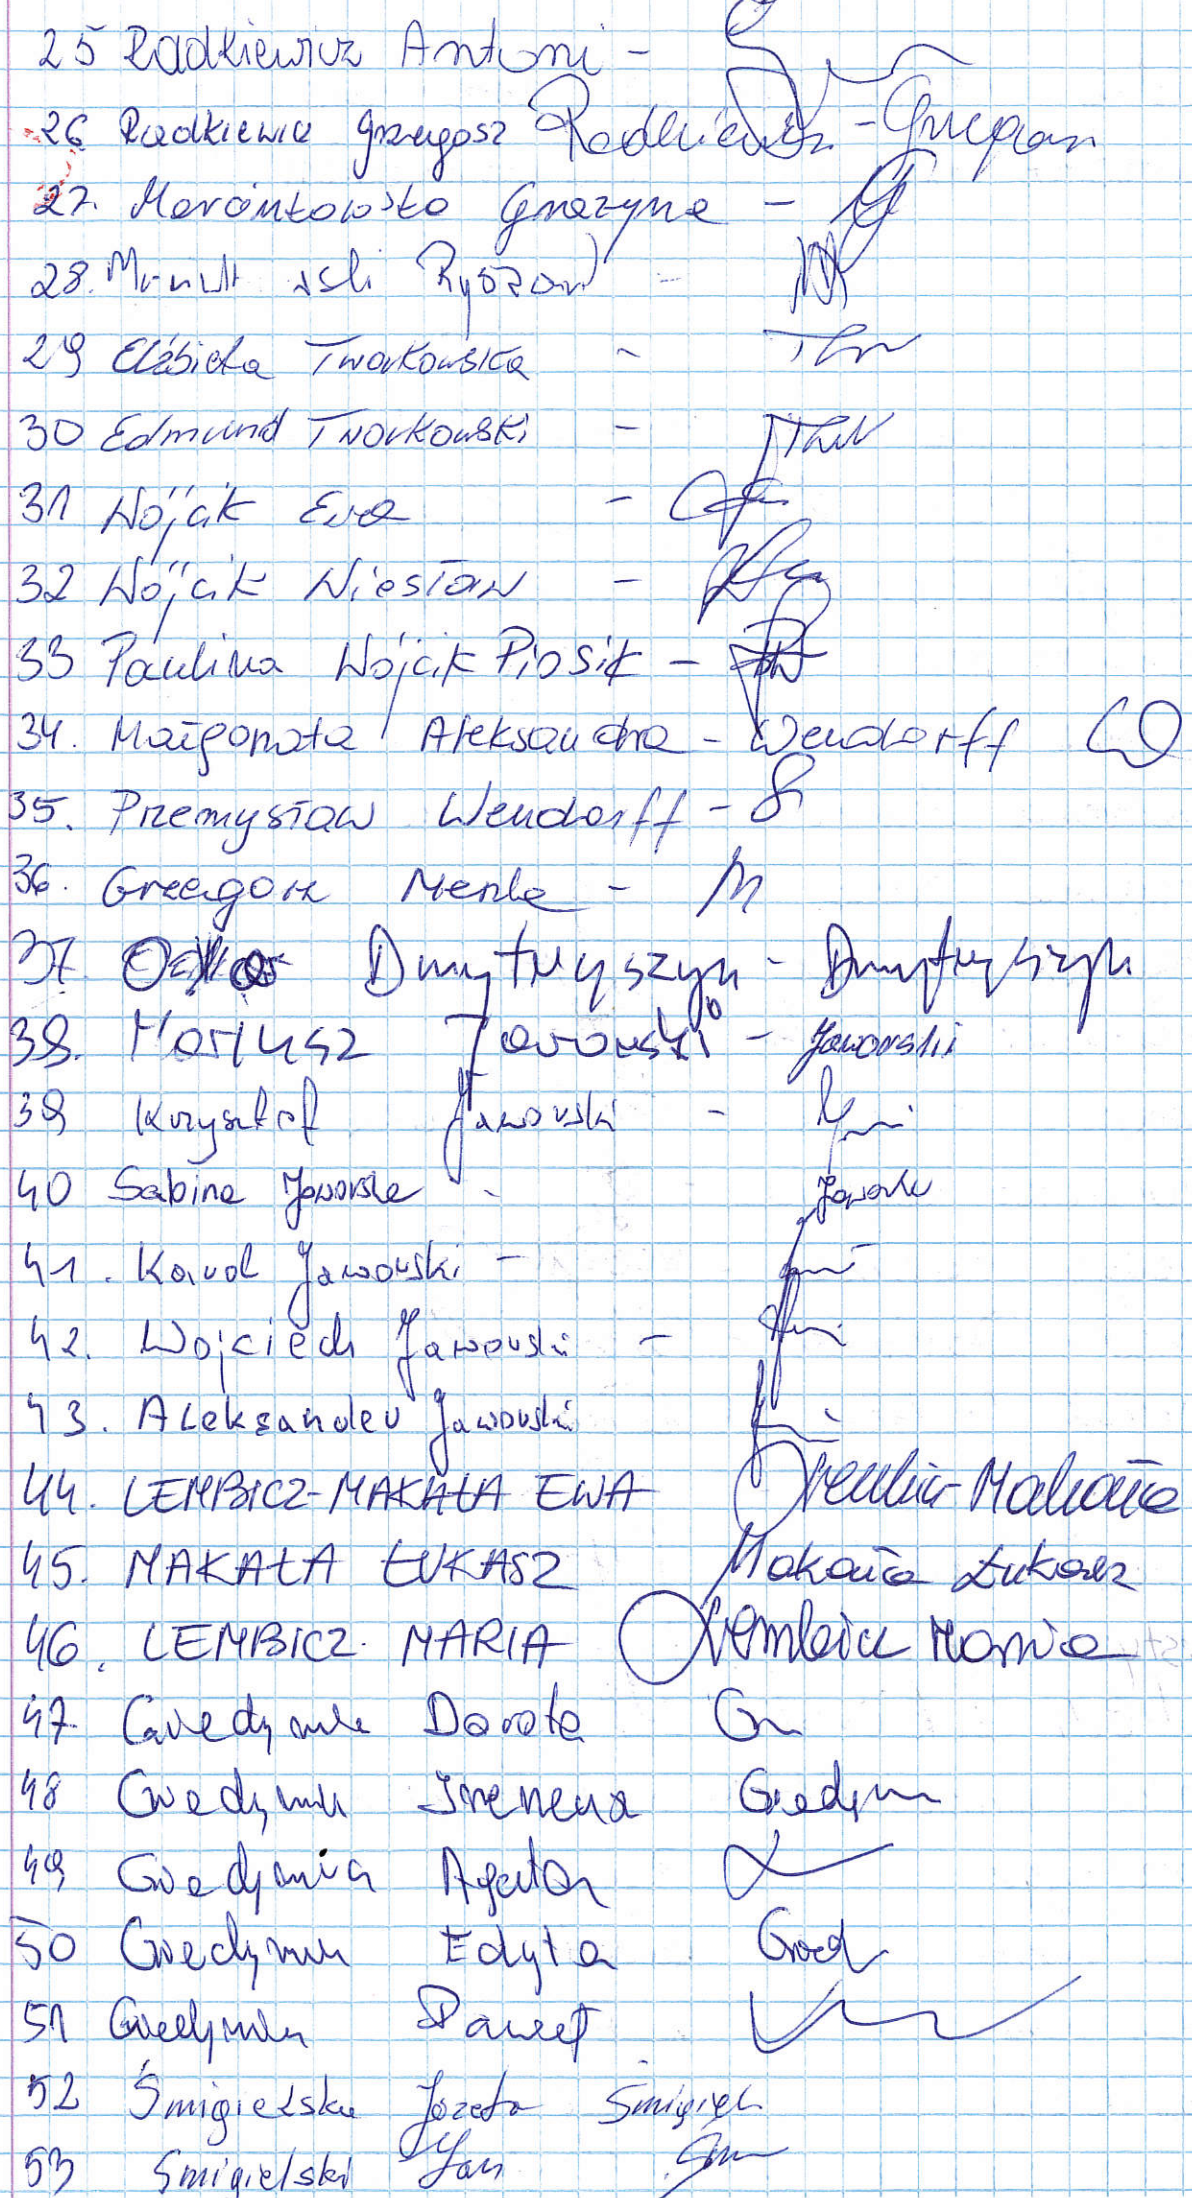 25 Radkiewicz Antoni -
26 Radkiewicz Grzegosz Radkiewicz - Grzegorz
27. Marcinkowska Grazyna -
28. Ryszard -
29 Elżbieta Tworkowska -
30 Edmund Tworkowski -
31 Wójcik Ewa -
32 Wójcik Wiesław -
33 Paulina Wójcik Piosik -
34. Małgorzata Aleksandra - Wendorff
35. Przemysław Wendorff -
36. Grzegorz Menke -
37. Dmytryszyn - Dmytryszyn
38. Mariusz Jaworski - Jaworski
39 Krzysztof Jaworski -
40 Sabina Jaworska -
41. Karol Jaworski -
42. Wojciech Jaworski -
43. Aleksander Jaworski
44. LEMBICZ-MAKAŁA EWA Lembicz-Makała
45. MAKAŁA ŁUKASZ Makała Łukasz
46. LEMBICZ MARIA Lembicz Maria
47. Dorota
48 Ireneusz
49 Agata
50 Edyta
51 Paweł
52 Śmigielska Józefa Śmigiel
53 Śmigielski Jan